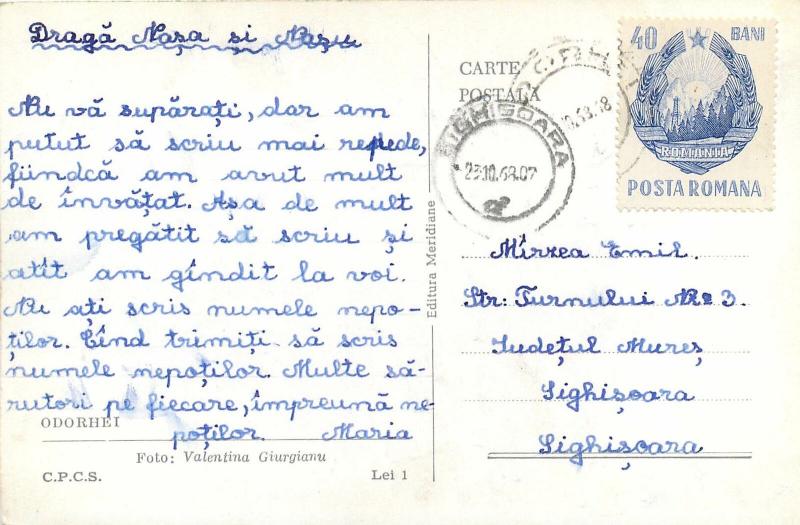 Dragă Nașa și Nașu
Nu vă supărați, dar am
putut să scriu mai repede,
fiindcă am avut mult
de învățat. Așa de mult
am pregătit să scriu și
atît am gîndit la voi.
Nu ați scris numele nepo-
ților. Cînd trimiți să scris
numele nepoților. Multe să-
rutori pe fiecare, împreună ne-
poților. Maria
ODORHEI
Foto: Valentina Giurgianu
C.P.C.S. Lei 1
Editura Meridiane
CARTE
POSTALĂ
SIGHIȘOARA
23.10.68.07
40 BANI
ROMANIA
POSTA ROMANA
Mîrzea Emil.
Str: Turnului Nr 3.
Județul Mureș
Sighișoara
Sighișoara